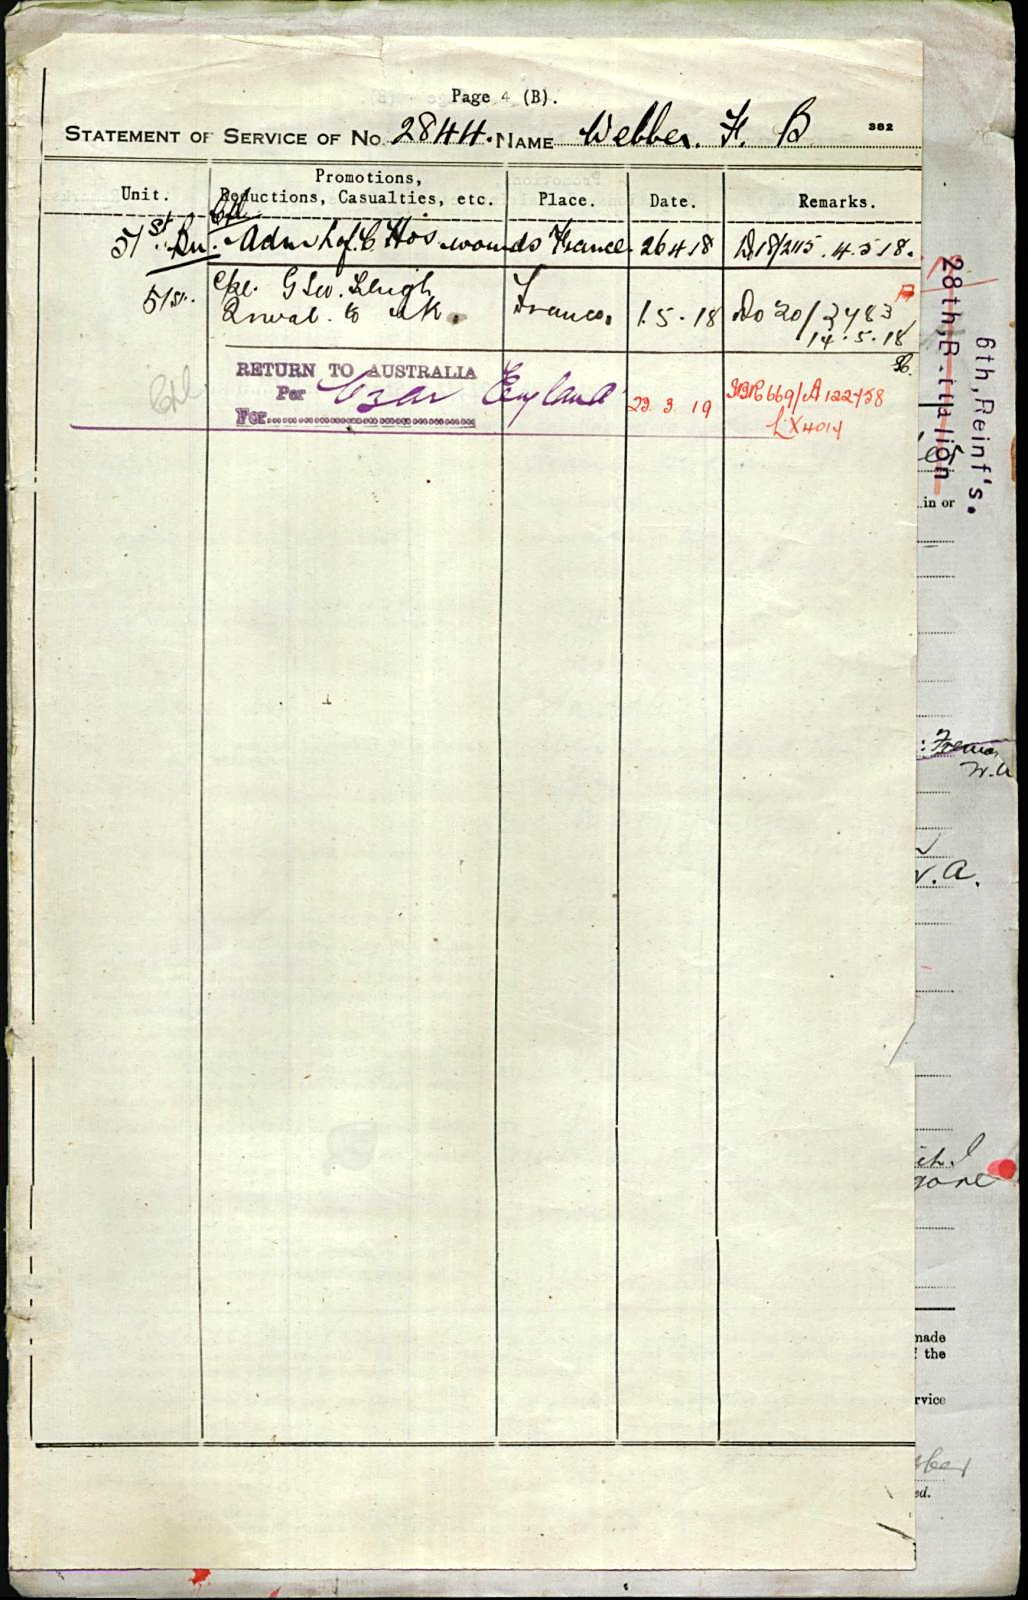 Page 4 (B).
STATEMENT OF SERVICE OF No. 2844. NAME Webber. F. B 382
Unit. Promotions, Reductions, Casualties, etc. Place. Date. Remarks.
Cpl
51st Bn. Adm Hos wounds France 26 4 18 D18/2115. 4.5.18.
51st. Cpl. G.S.W. Thigh France. 1.5.18 Do 20/3483
Inval. to UK. 14.5.18
RETURN TO AUSTRALIA England 23 3 19
Per Czar
For
Cpl
LX4014
28th, Battalion
6th, Reinf's.
in or
W.A
.A.
gone
made
the
rvice
ed.